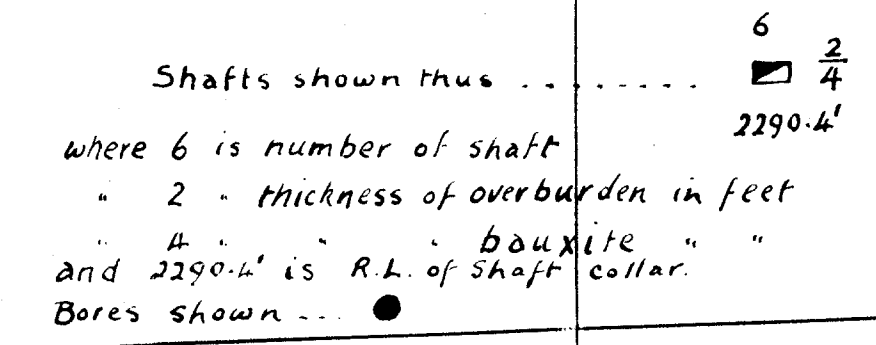 6
Shafts shown thus ........ 2/4
2290.4'
where 6 is number of shaft
" 2 " thickness of overburden in feet
" 4 " " " bauxite " "
and 2290.4' is R.L. of Shaft collar.
Bores shown ...